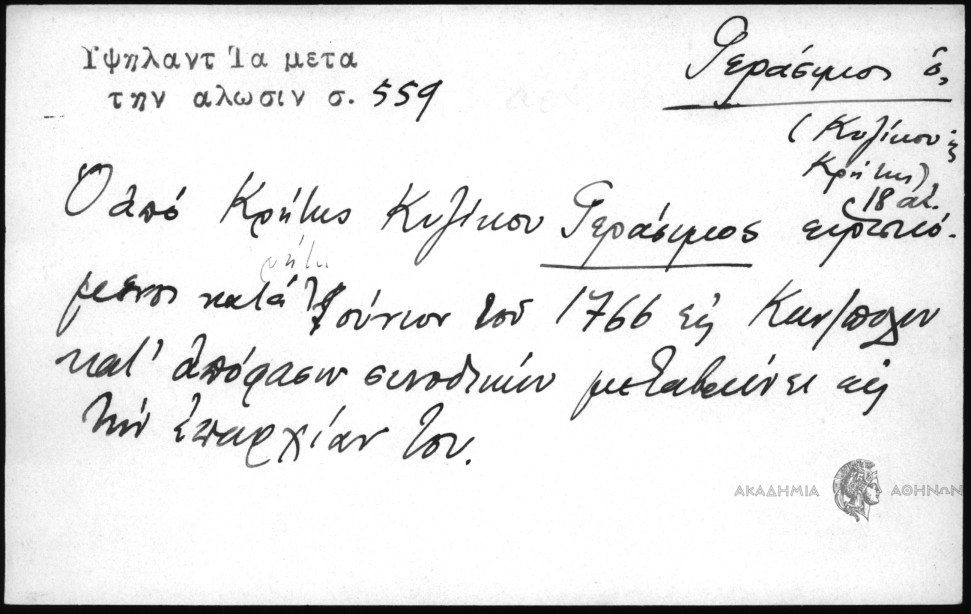 Υψηλαντ Τα μετα
την αλωσιν σ. 559
Γεράσιμος ὁ,
(Κυζίκου ἐκ
Κρήτης)
18 αἰ.
Ὁ ἀπό Κρήτης Κυζίκου Γεράσιμος εὑρισκό-
μενος κατά Ἰούνιον τοῦ 1766 εἰς Κων/πολιν
κατ' ἀπόφασιν συνοδικήν μεταβαίνει εἰς
τήν ἐπαρχίαν του.
ΑΚΑΔΗΜΙΑ ΑΘΗΝΩΝ